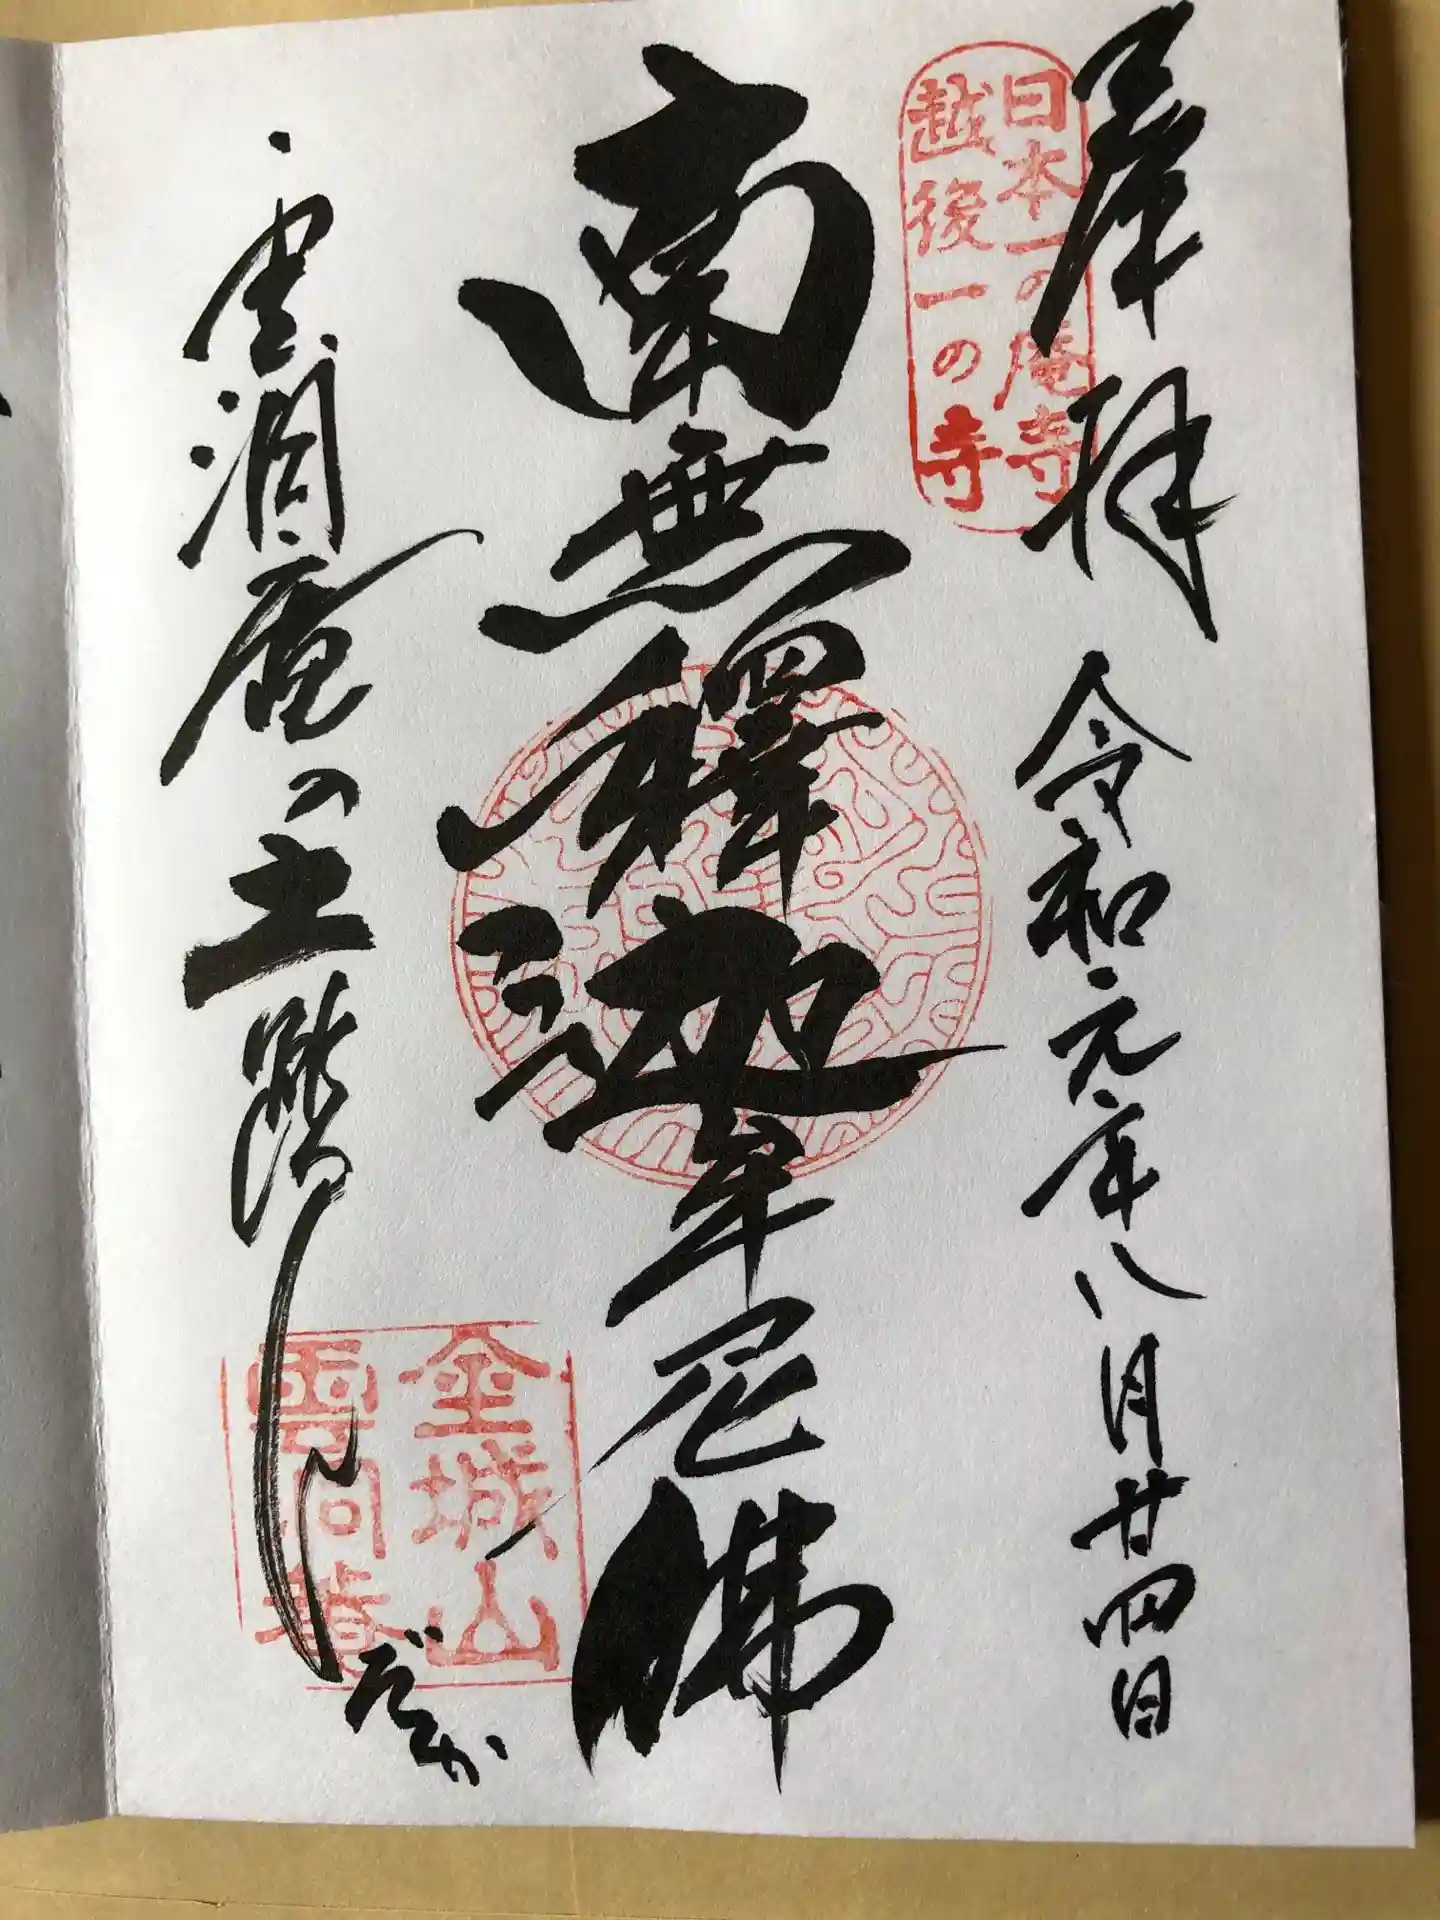 拝 令和元年八月廿四日
日本一の庵寺
越後一の寺
南無釋迦牟尼佛
雲洞庵の土踏んだか
金城山
雲洞菴